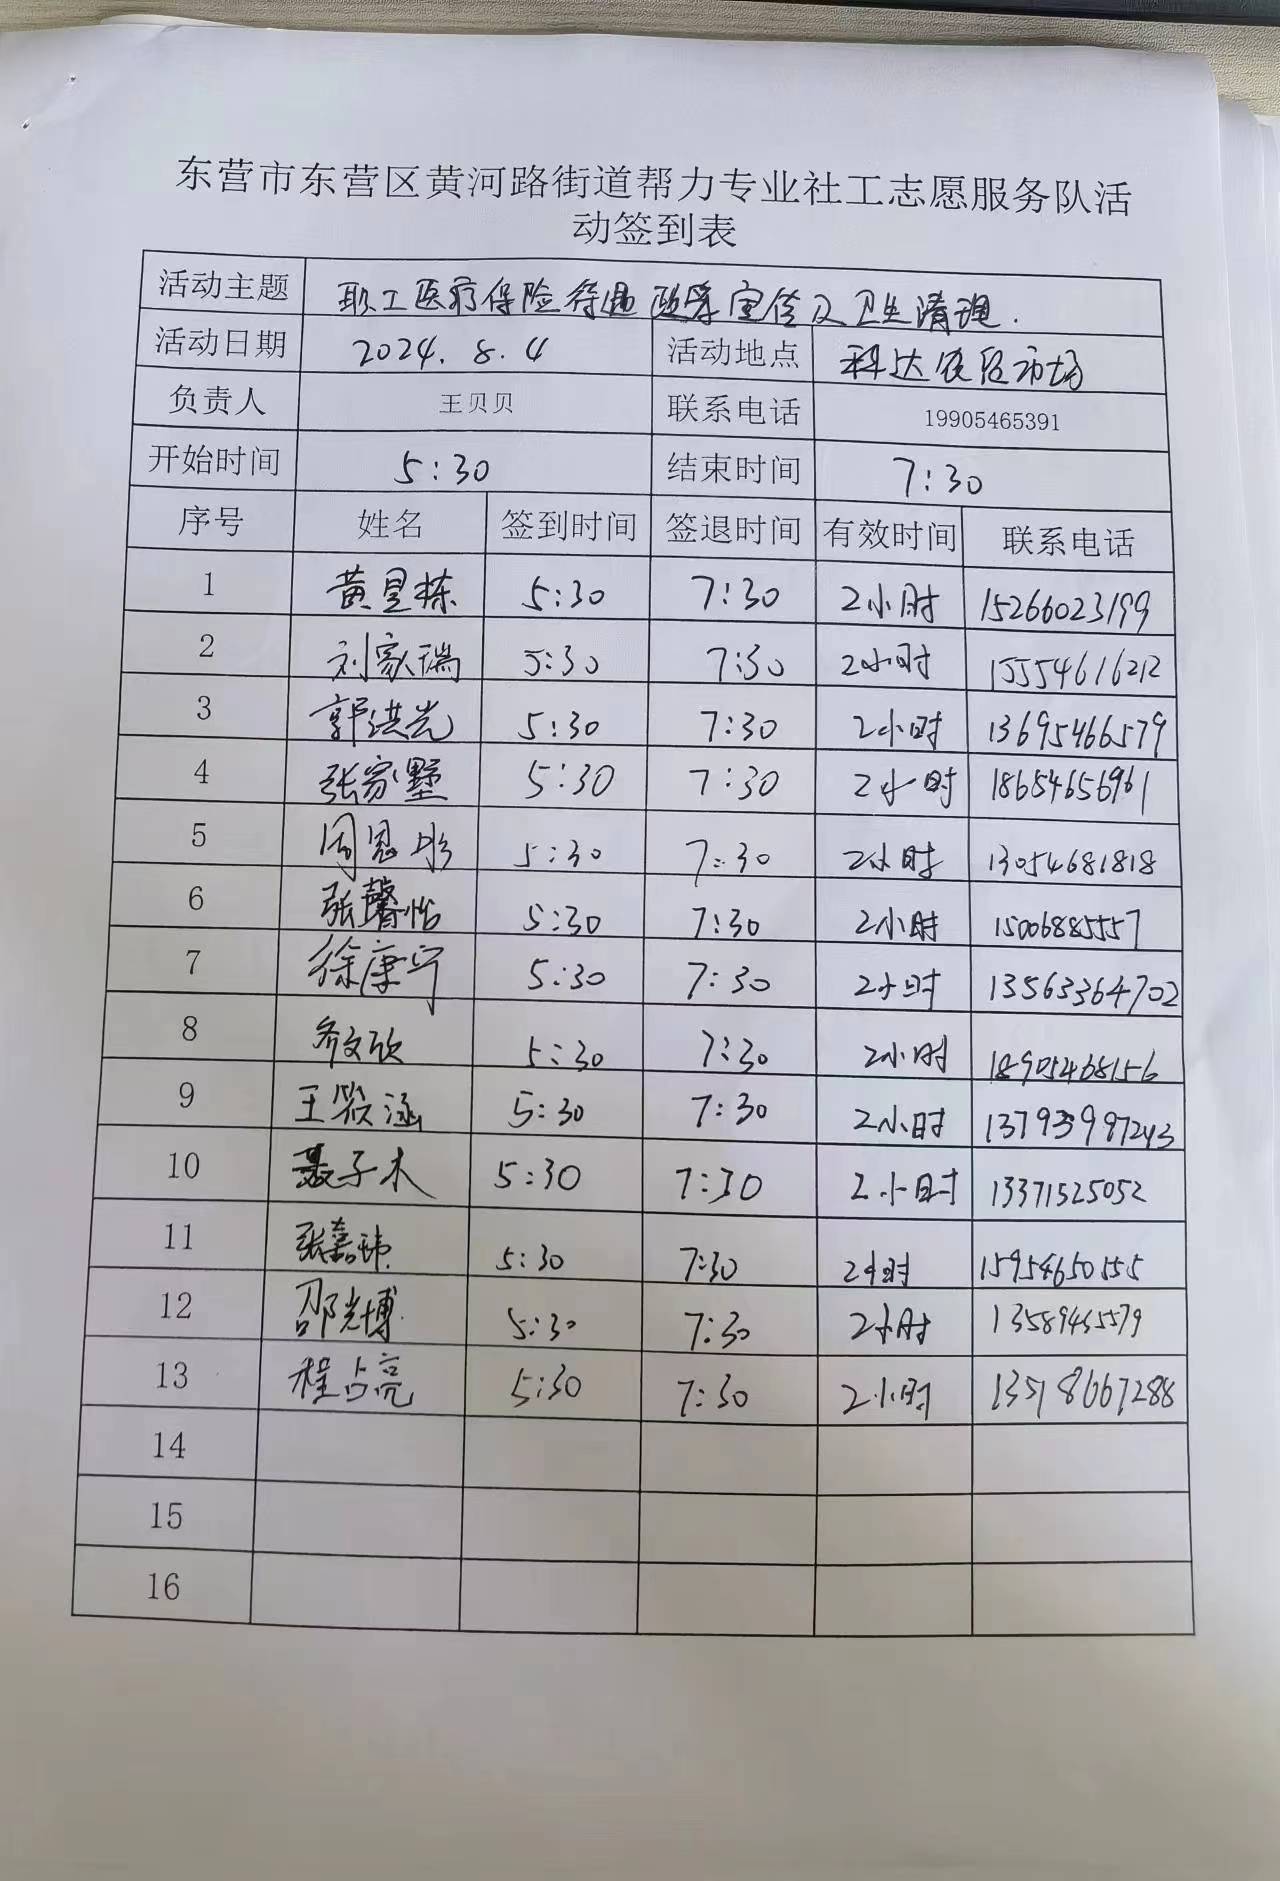 东营市东营区黄河路街道帮力专业社工志愿服务队活
动签到表
活动主题 职工医疗保险待遇政策宣传及卫生清理.
活动日期 2024.8.4 活动地点 科达农贸市场
负责人 王贝贝 联系电话 19905465391
开始时间 5:30 结束时间 7:30
序号 姓名 签到时间 签退时间 有效时间 联系电话
1 黄昱栋 5:30 7:30 2小时 15266023199
2 刘家瑞 5:30 7:30 2小时 15554616212
3 郭洪光 5:30 7:30 2小时 13695466579
4 张家墅 5:30 7:30 2小时 18654656961
5 周恩彤 5:30 7:30 2小时 13054681818
6 张馨怡 5:30 7:30 2小时 15006885557
7 徐康宁 5:30 7:30 2小时 13563364702
8 齐文欣 5:30 7:30 2小时 18905468156
9 王筱涵 5:30 7:30 2小时
10 聂子木 5:30 7:30 2小时 13371525052
11 张嘉玮 5:30 7:30 2小时 15954650555
12 邵光博 5:30 7:30 2小时 13589465579
13 程占亮 5:30 7:30 2小时 13518667288
14
15
16